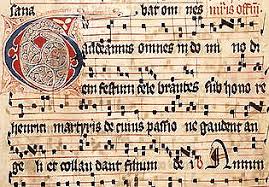 sana
Gaudeamus omnes in do mi no di
em festum cele brantes sub hono re
henrici martyris de cuius passio ne gaudent an
ge li et collau dant filium de